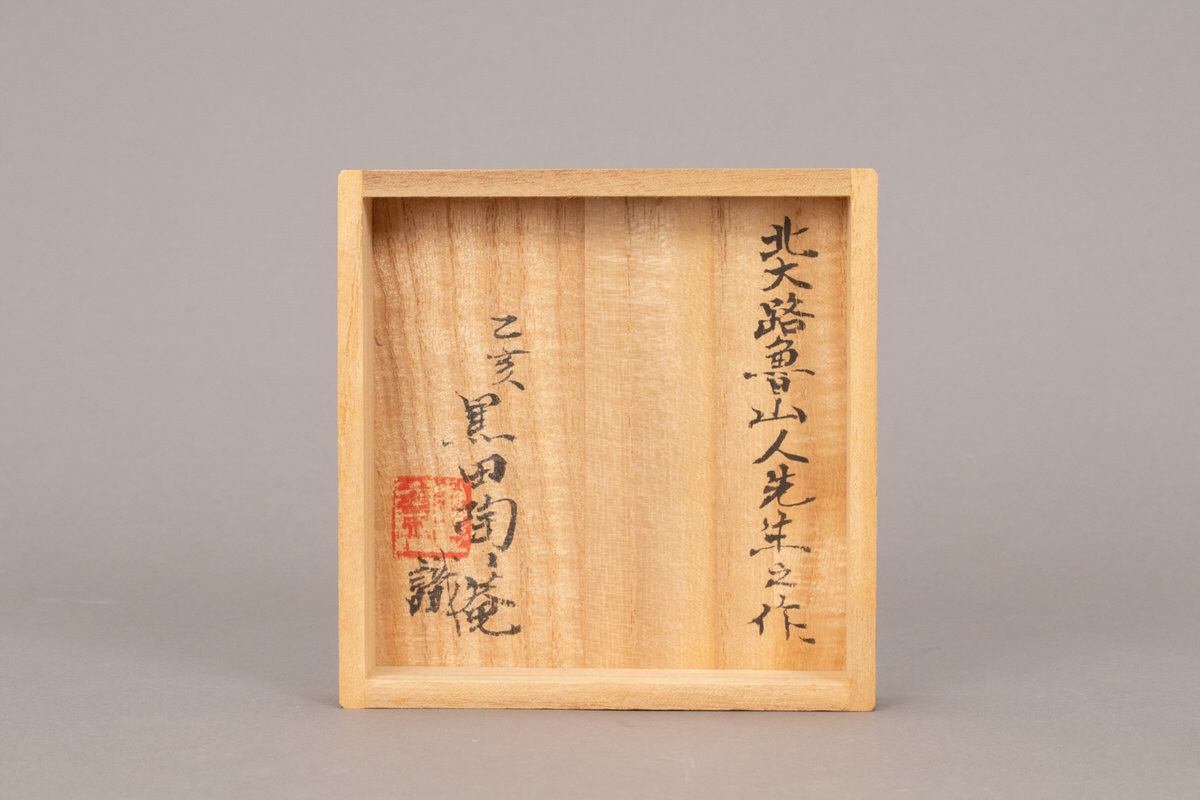 北大路魯山人先生之作
乙亥
黒田陶〻庵
識